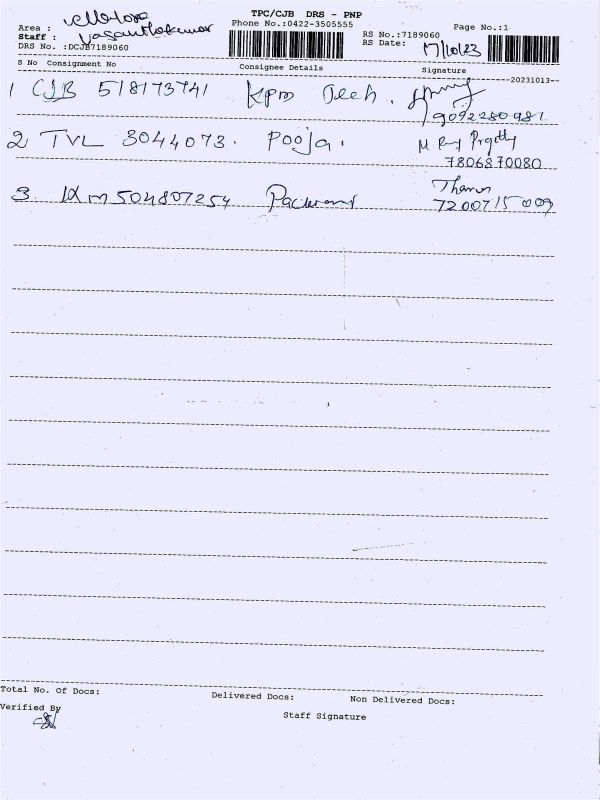 TPC/CJB DRS - PNP
Area :
Phone No.:0422-3505555
Page No.:1
Staff : Vasanthakumar
RS No.:7189060
DRS No. :DCJB7189060
RS Date: 17/10/23
S No Consignment No Consignee Details Signature
--20231013--
1 CJB 518173741 Kpm Tech.
9092280981
2 TVL 3044073. Pooja.
7806870080
3. IXM 504807254
7200715009
Total No. Of Docs: Delivered Docs: Non Delivered Docs:
Verified By
Staff Signature